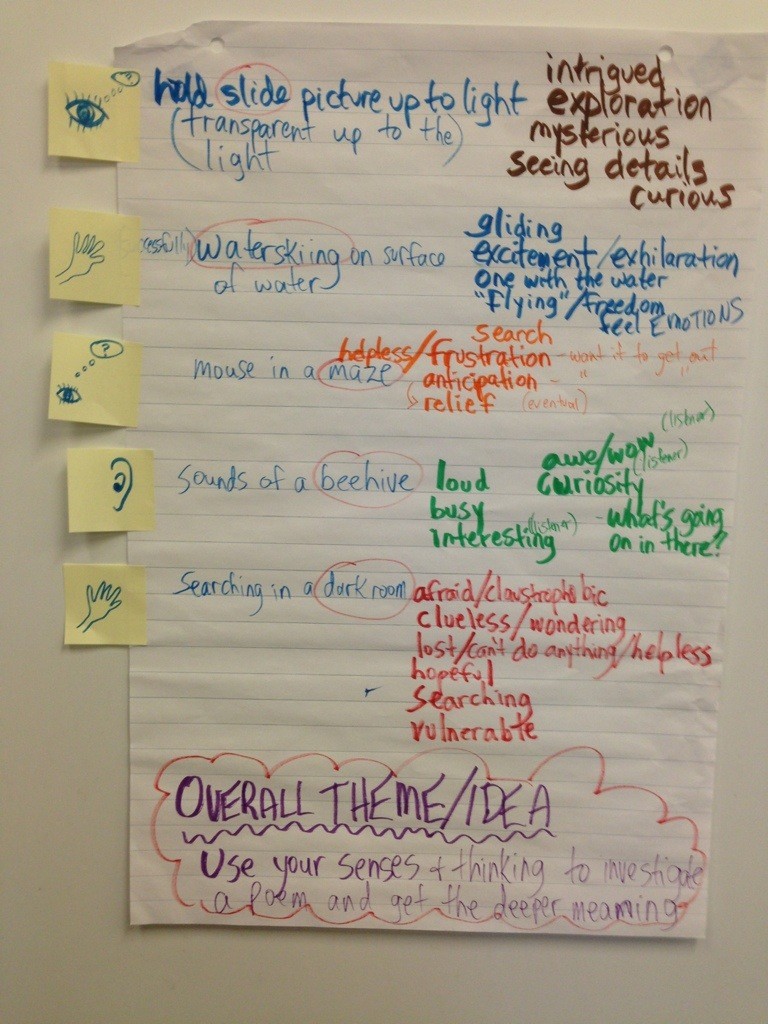 ?
hold slide picture up to light
(transparent up to the)
light
intrigued
exploration
mysterious
seeing details
curious
cessfully) waterskiing on surface
of water
gliding
excitement/exhilaration
one with the water
"flying"/freedom
feel EMOTIONS
?
mouse in a maze
search
helpless/frustration - want it to get out
anticipation - " "
relief (eventual)
sounds of a beehive
loud
busy
interesting (listener)
(listener)
awe/wow
(listener)
curiosity
- what's going
on in there?
Searching in a dark room
afraid/claustrophobic
clueless/wondering
lost/can't do anything/helpless
hopeful
searching
vulnerable
OVERALL THEME/IDEA
Use your senses + thinking to investigate
a poem and get the deeper meaming